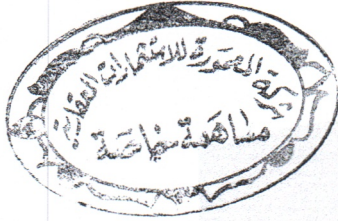 شركة المنصورة للاستثمارات العقارية
مساهمة خاصة